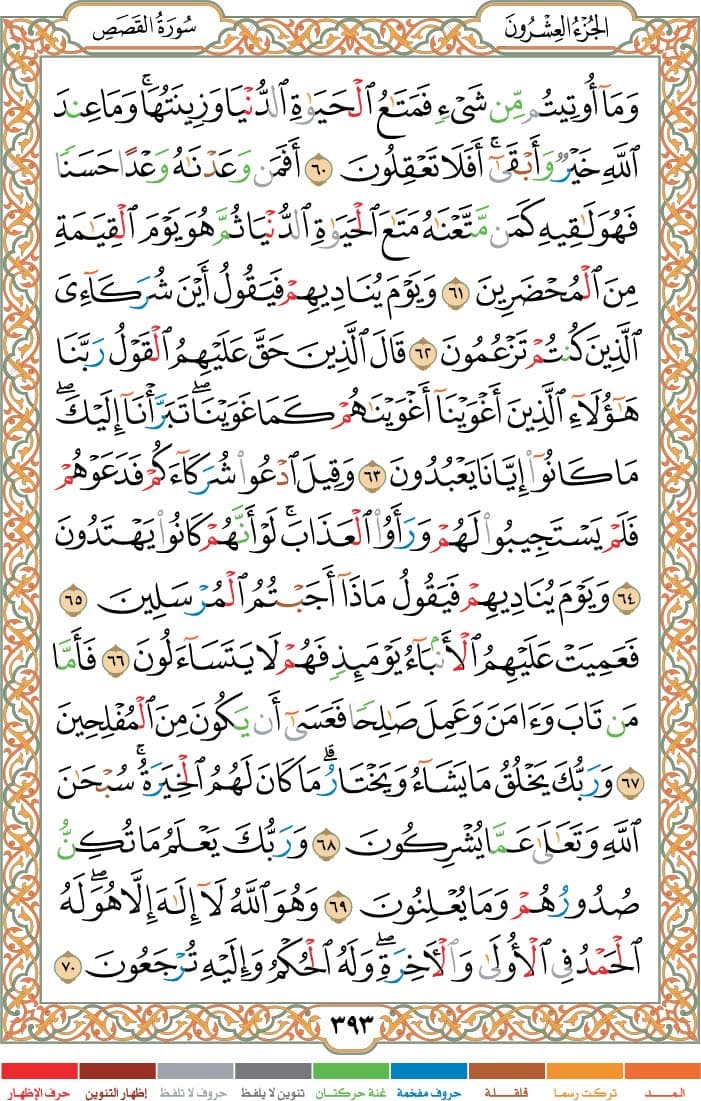 الجُزْءُ العِشْرُونَ
سُورَةُ القَصَصِ
وَمَآ أُوتِيتُم مِّن شَىْءٍ فَمَتَـٰعُ ٱلْحَيَوٰةِ ٱلدُّنْيَا وَزِينَتُهَا ۚ وَمَا عِندَ
ٱللَّهِ خَيْرٌ وَأَبْقَىٰٓ ۚ أَفَلَا تَعْقِلُونَ ٦٠ أَفَمَن وَعَدْنَـٰهُ وَعْدًا حَسَنًا
فَهُوَ لَـٰقِيهِ كَمَن مَّتَّعْنَـٰهُ مَتَـٰعَ ٱلْحَيَوٰةِ ٱلدُّنْيَا ثُمَّ هُوَ يَوْمَ ٱلْقِيَـٰمَةِ
مِنَ ٱلْمُحْضَرِينَ ٦١ وَيَوْمَ يُنَادِيهِمْ فَيَقُولُ أَيْنَ شُرَكَآءِىَ
ٱلَّذِينَ كُنتُمْ تَزْعُمُونَ ٦٢ قَالَ ٱلَّذِينَ حَقَّ عَلَيْهِمُ ٱلْقَوْلُ رَبَّنَا
هَـٰٓؤُلَآءِ ٱلَّذِينَ أَغْوَيْنَآ أَغْوَيْنَـٰهُمْ كَمَا غَوَيْنَا ۖ تَبَرَّأْنَآ إِلَيْكَ ۖ
مَا كَانُوٓا۟ إِيَّانَا يَعْبُدُونَ ٦٣ وَقِيلَ ٱدْعُوا۟ شُرَكَآءَكُمْ فَدَعَوْهُمْ
فَلَمْ يَسْتَجِيبُوا۟ لَهُمْ وَرَأَوُا۟ ٱلْعَذَابَ ۚ لَوْ أَنَّهُمْ كَانُوا۟ يَهْتَدُونَ
٦٤ وَيَوْمَ يُنَادِيهِمْ فَيَقُولُ مَاذَآ أَجَبْتُمُ ٱلْمُرْسَلِينَ ٦٥
فَعَمِيَتْ عَلَيْهِمُ ٱلْأَنۢبَآءُ يَوْمَئِذٍ فَهُمْ لَا يَتَسَآءَلُونَ ٦٦ فَأَمَّا
مَن تَابَ وَءَامَنَ وَعَمِلَ صَـٰلِحًا فَعَسَىٰٓ أَن يَكُونَ مِنَ ٱلْمُفْلِحِينَ
٦٧ وَرَبُّكَ يَخْلُقُ مَا يَشَآءُ وَيَخْتَارُ ۗ مَا كَانَ لَهُمُ ٱلْخِيَرَةُ ۚ سُبْحَـٰنَ
ٱللَّهِ وَتَعَـٰلَىٰ عَمَّا يُشْرِكُونَ ٦٨ وَرَبُّكَ يَعْلَمُ مَا تُكِنُّ
صُدُورُهُمْ وَمَا يُعْلِنُونَ ٦٩ وَهُوَ ٱللَّهُ لَآ إِلَـٰهَ إِلَّا هُوَ ۖ لَهُ
ٱلْحَمْدُ فِى ٱلْأُولَىٰ وَٱلْـَٔاخِرَةِ ۖ وَلَهُ ٱلْحُكْمُ وَإِلَيْهِ تُرْجَعُونَ ٧٠
٣٩٣
المـــد
تركت رسما
قلقـــلة
حروف مفخمة
غنة حركتان
تنوين لا يلفظ
حروف لا تلفظ
إظهار التنوين
حرف الإظهار